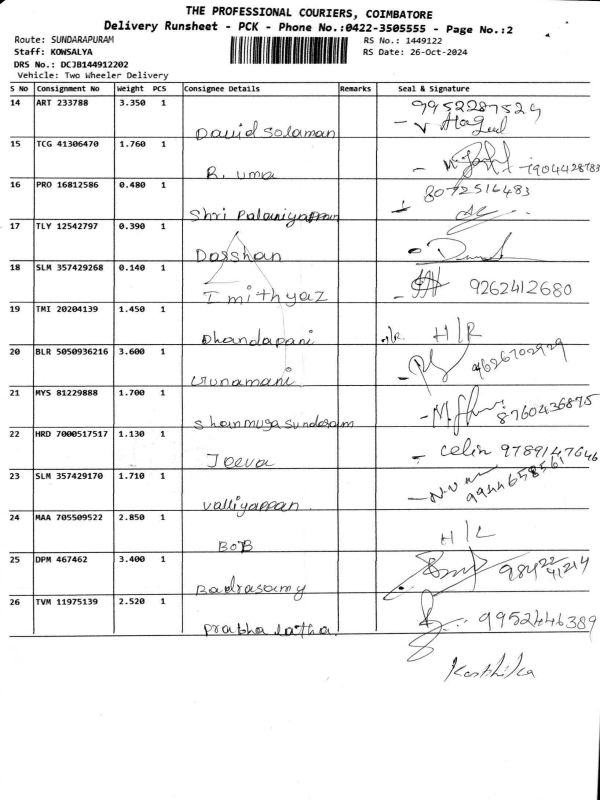 THE PROFESSIONAL COURIERS, COIMBATORE
Delivery Runsheet - PCK - Phone No.:0422-3505555 - Page No.:2
Route: SUNDARAPURAM RS No.: 1449122
Staff: KOWSALYA RS Date: 26-Oct-2024
DRS No.: DCJB144912202
Vehicle: Two Wheeler Delivery
S No Consignment No Weight PCS Consignee Details Remarks Seal & Signature
14 ART 233788 3.350 1 David Solaman 9952287529
15 TCG 41306470 1.760 1 R. uma
16 PRO 16812586 0.480 1 Shri Palaniyappan 8072516483
17 TLY 12542797 0.390 1 Dasshan
18 SLM 357429268 0.140 1 Imithyaz 9262412680
19 TMI 20204139 1.450 1 Dhandapani H/R
20 BLR 5050936216 3.600 1 Gunamani 9626702929
21 MYS 81229888 1.700 1 Shanmuga sundaram 8760436875
22 HRD 7000517517 1.130 1 Jeeva celin 9789147646
23 SLM 357429170 1.710 1 Valliyappan 9944658561
24 MAA 705509522 2.850 1 BOB H/L
25 DPM 467462 3.400 1 98422 41214
26 TVM 11975139 2.520 1 Prabha latha. 9952446389